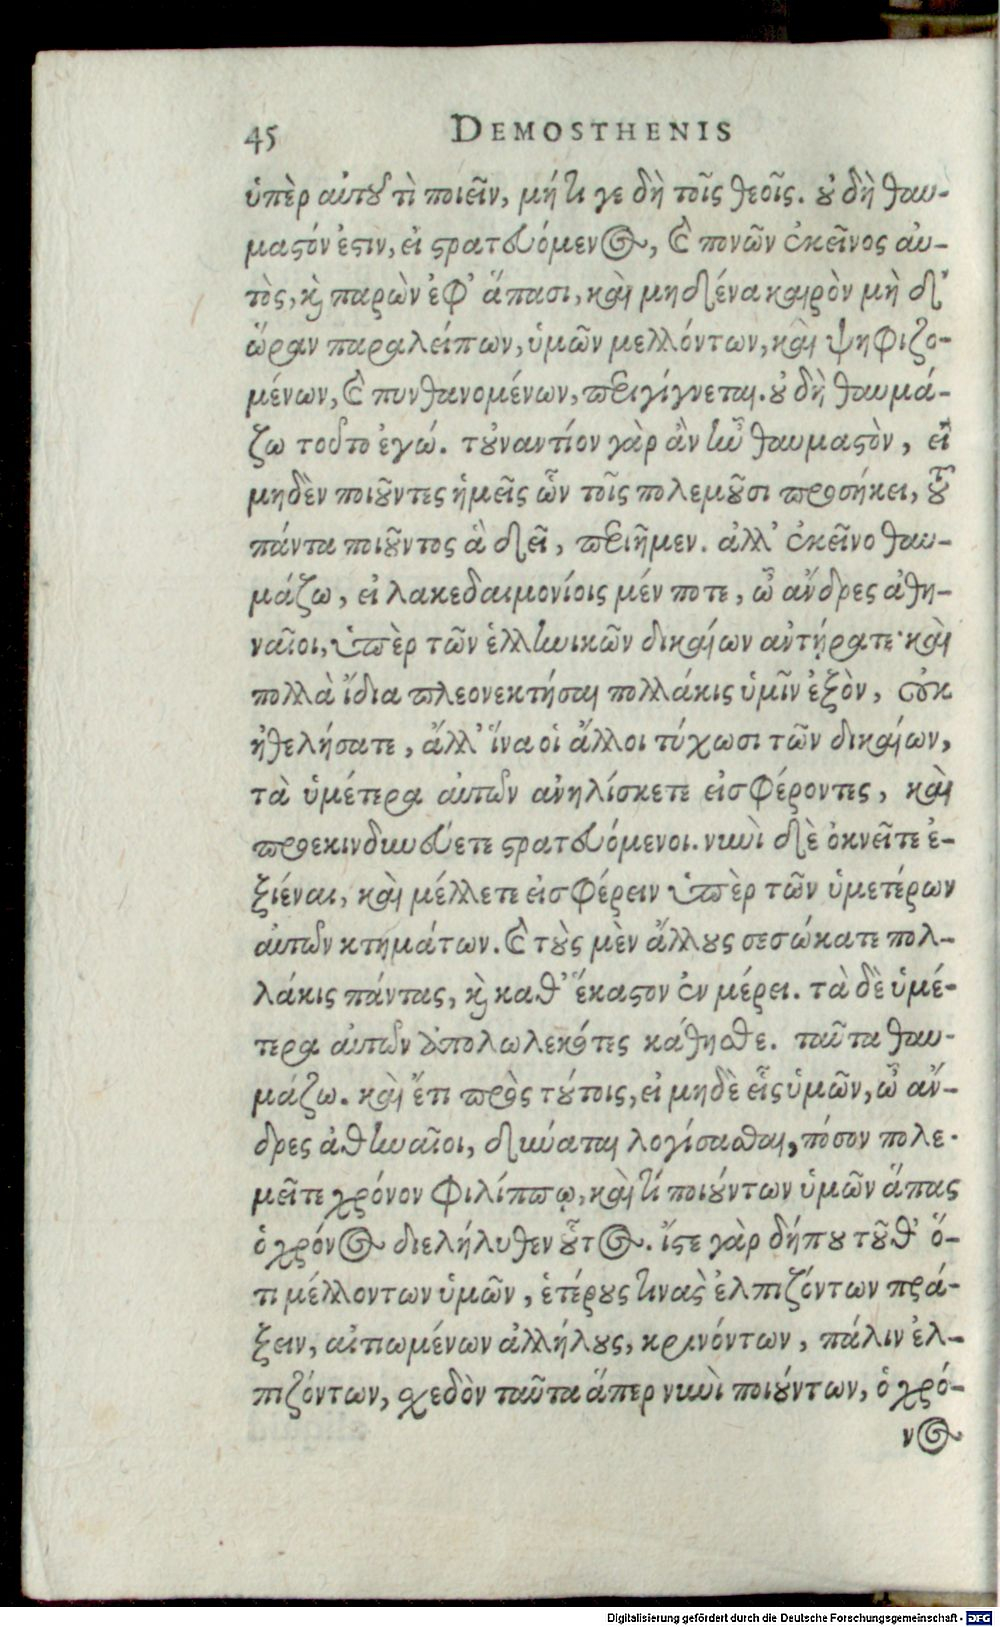 45 DEMOSTHENIS
ὑπὲρ αὑτοῦ τὶ ποιεῖν, μή τι γε δὴ τοῖς θεοῖς. οὐ δὴ θαυ-
μαστόν ἐστιν, εἰ στρατευόμενος, καὶ πονῶν ἐκεῖνος αὐ-
τὸς, καὶ παρὼν ἐφ' ἅπασι, καὶ μηδένα καιρὸν μὴ δ'
ὥραν παραλείπων, ὑμῶν μελλόντων, καὶ ψηφιζο-
μένων, καὶ πυνθανομένων, περιγίγνεται. οὐ δὴ θαυμά-
ζω τοῦτο ἐγώ. τοὐναντίον γὰρ ἂν ἦν θαυμαστὸν, εἰ
μηδὲν ποιοῦντες ἡμεῖς ὧν τοῖς πολεμοῦσι προσήκει, τοῦ
πάντα ποιοῦντος ἃ δεῖ, περιῆμεν. ἀλλ' ἐκεῖνο θαυ-
μάζω, εἰ λακεδαιμονίοις μέν ποτε, ὦ ἄνδρες ἀθη-
ναῖοι, ὑπὲρ τῶν ἑλληνικῶν δικαίων ἀντήρατε· καὶ
πολλὰ ἴδια πλεονεκτήσαι πολλάκις ὑμῖν ἐξὸν, οὐκ
ἠθελήσατε, ἄλλ' ἵνα οἱ ἄλλοι τύχωσι τῶν δικαίων,
τὰ ὑμέτερα αὑτῶν ἀνηλίσκετε εἰσφέροντες, καὶ
προεκινδυνεύετε στρατευόμενοι. νυνὶ δὲ ὀκνεῖτε ἐ-
ξιέναι, καὶ μέλλετε εἰσφέρειν ὑπὲρ τῶν ὑμετέρων
αὑτῶν κτημάτων. καὶ τοὺς μὲν ἄλλους σεσώκατε πολ-
λάκις πάντας, καὶ καθ' ἕκαστον ἐν μέρει. τὰ δὲ ὑμέ-
τερα αὑτῶν ἀπολωλεκότες κάθησθε. ταῦτα θαυ-
μάζω. καὶ ἔτι πρὸς τούτοις, εἰ μηδὲ εἷς ὑμῶν, ὦ ἄν-
δρες ἀθηναῖοι, δύναται λογίσασθαι, πόσον πολε-
μεῖτε χρόνον Φιλίππῳ, καὶ τί ποιούντων ὑμῶν ἅπας
ὁ χρόνος διελήλυθεν οὗτος. ἴστε γὰρ δήπου τοῦθ' ὅ-
τι μέλλοντων ὑμῶν, ἑτέρους τινὰς ἐλπιζόντων πρά-
ξειν, αἰτιωμένων ἀλλήλους, κρινόντων, πάλιν ἐλ-
πιζόντων, σχεδὸν ταῦτα ἅπερ νυνὶ ποιούντων, ὁ χρό-
νος
Digitalisierung gefördert durch die Deutsche Forschungsgemeinschaft - DFG